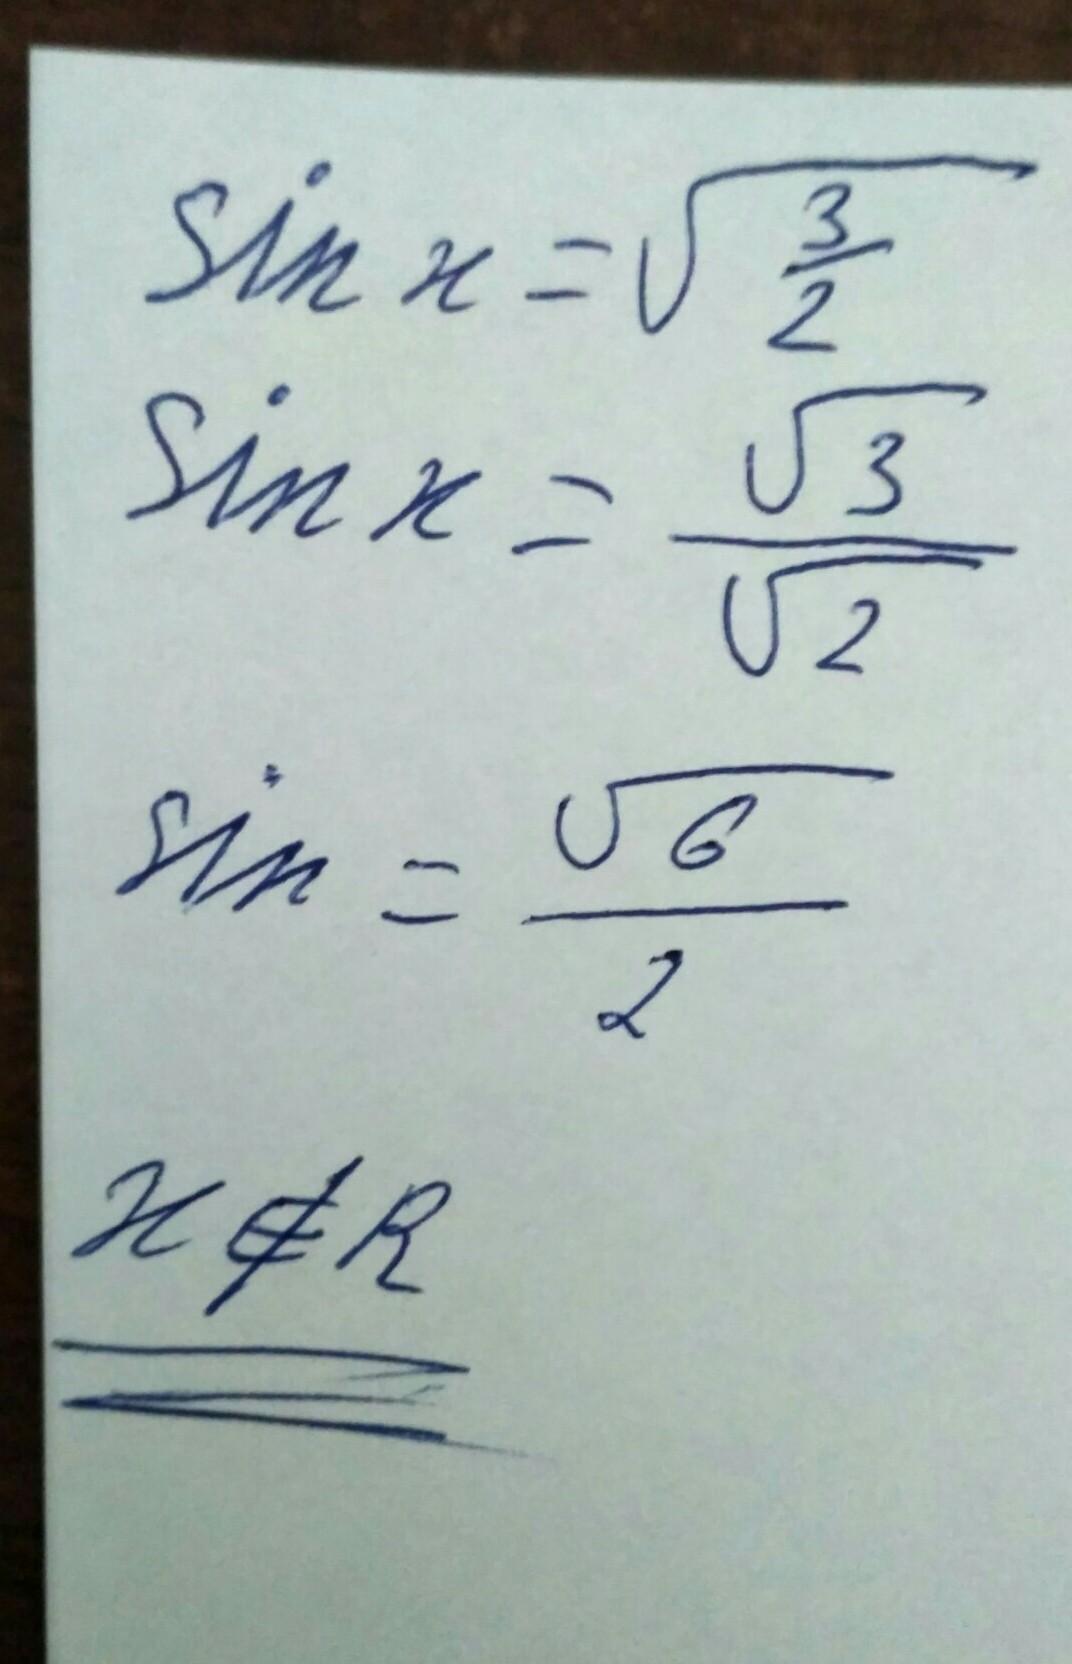 sin x = √(3/2)
sin x = √3/√2
sin = √6/2
x ∉ R